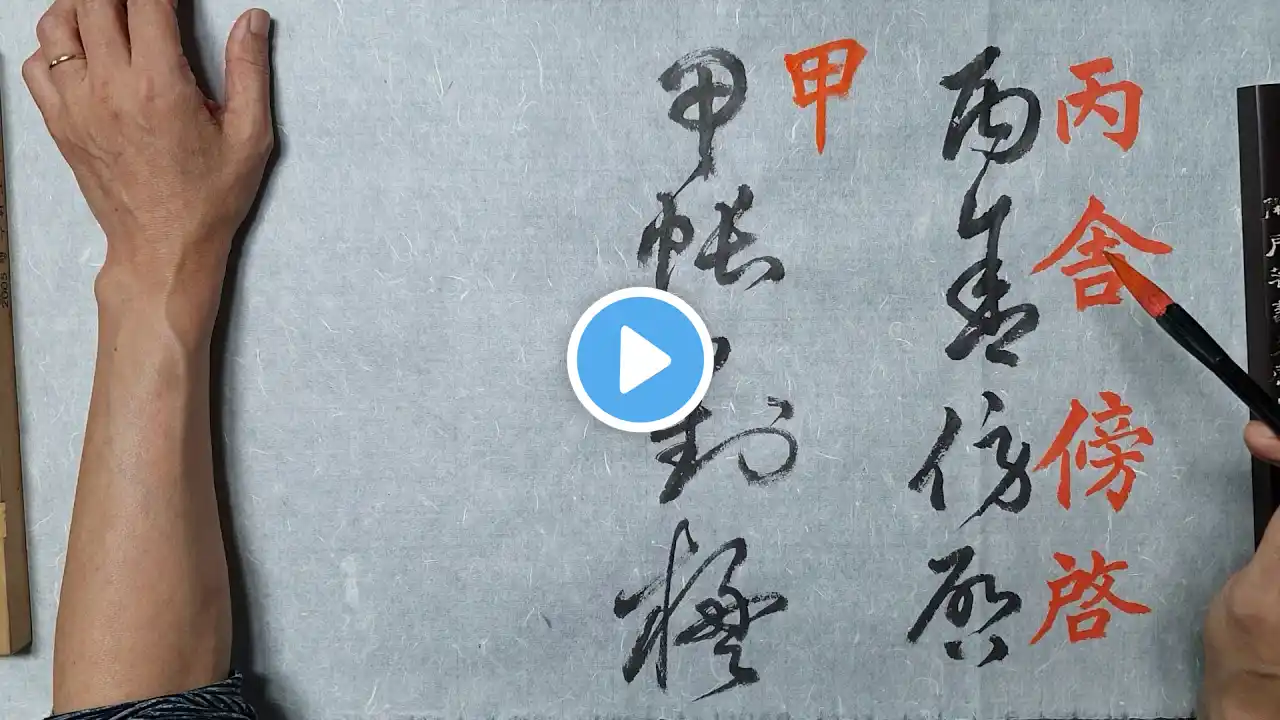 丙舍傍啓
丙舍傍啓
甲
甲帳對楹